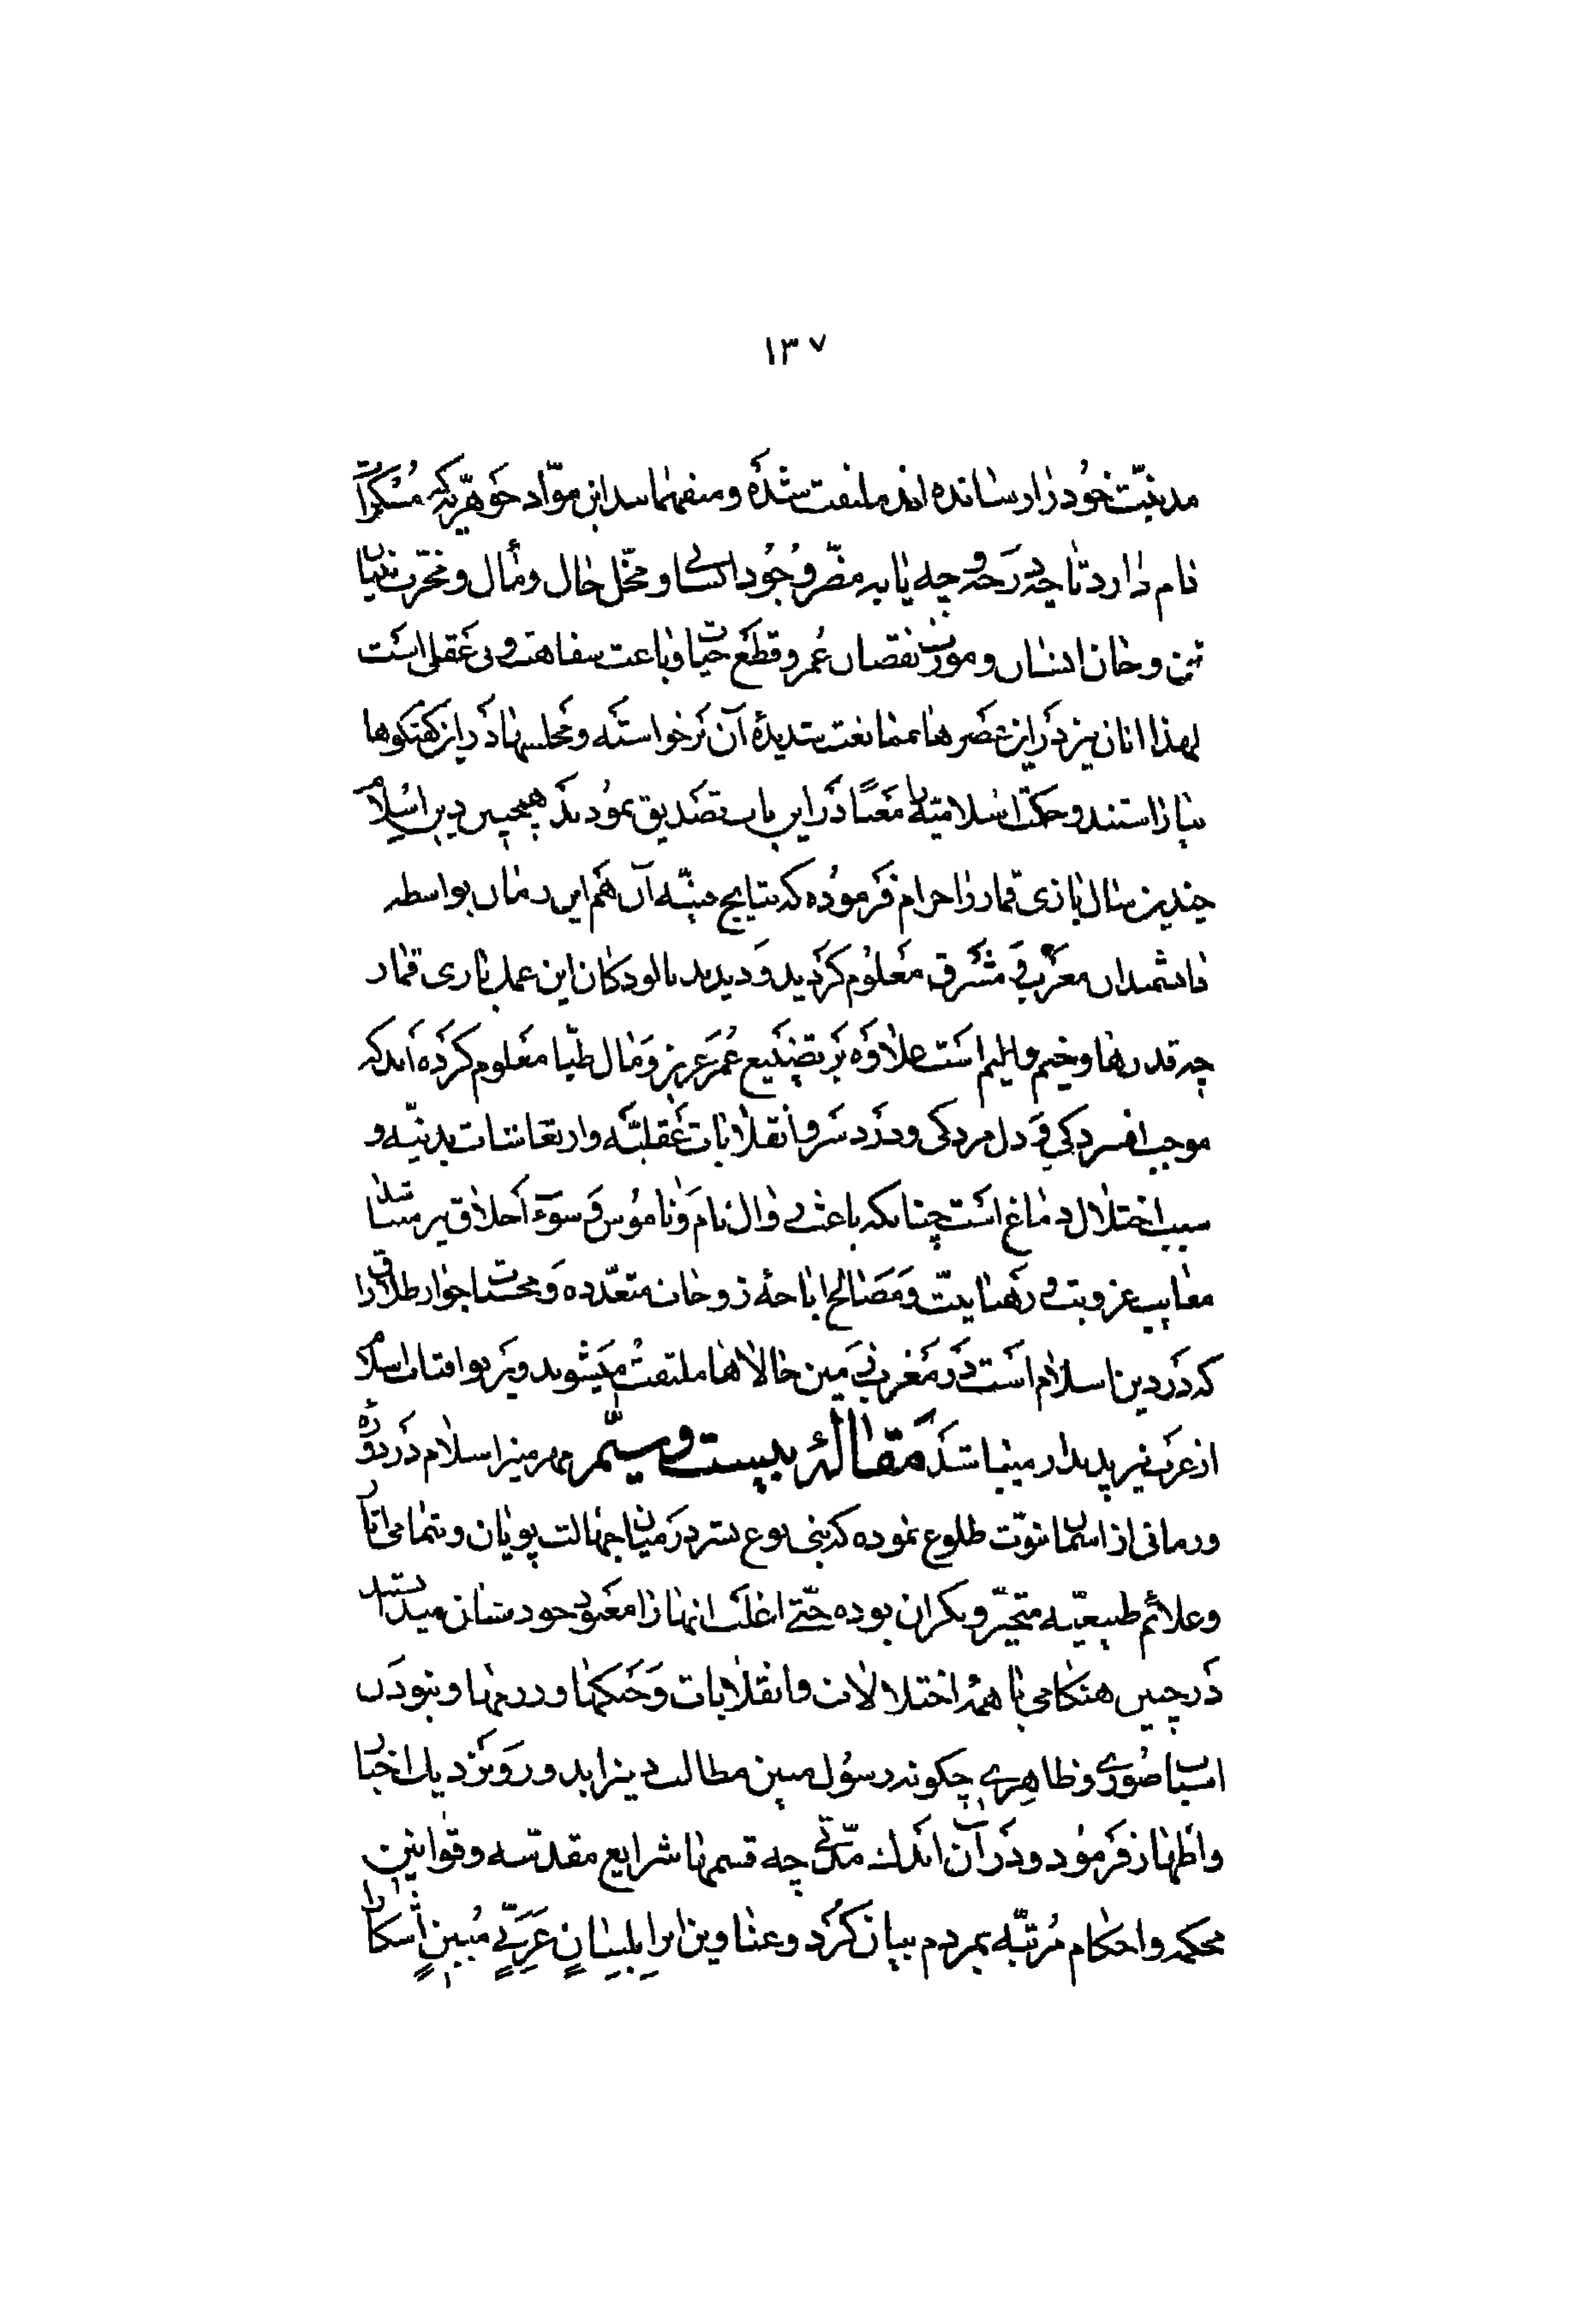 ١٣٧
مدنیّت خود را رسانده اند ملتفت شده و میفهمانند این موّاد جوهریّه که مسکرات
نام دارد تا چه درجه و چه پایه مضّر وجود انسانی و مخّل حال و مآل و مخّرب بنیان
تن و جان انسان و مورث نقصان عمر و قطع حیات و باعث سفاهت و بی عقلی است
لهذا آنان نیز در این عصرها ممانعت شدیدهٔ آن برخواسته و مجلسها در این گفتگوها
بیاراستند و حکمت اسلامیّه را معنًا در این باب تصدیق نمودند همچنین دین اسلام
چندین سال بازی قمار را حرام فرموده که نتایج آن هم این زمان بواسطه
دانشمندان مغرب و مشرق معلوم گردید و دیدند بالودگان این عمل بازی قمار
چه قدرها وخیم و الیم است علاوه بر تضییع عمر عزیز و مال طیبا معلوم کرده اند که
موجب افسردگی و دل مردگی و درد سر و انقلابات عقلیّه و ارتعاشات بدنیّه و
سبب اختلال دماغ است چنانکه باعث زوال نام و ناموس و سوء اخلاق نیز
معایب عزوبت و رهبانیت و مصالح اباحهٔ زوجات متعدّده و محسنات جواز طلاق را
که در دین اسلام است در مغرب زمین حالاها ملتفت میشوند و نیز بوافتاب اسلام
از غرب نیز پدیدار مینماشد مقالهٔ بیست و سیّم مهر منیر اسلام در دوره
و زمانی از اسمان نبوّت طلوع نموده که بنی نوع بشر در میان جهالت پویان و بتمامی اثار
و علائم طبیعیّه متحیّر و نگران بوده حتّی اغلب انها را معبود خودشان میدانستند
در چنین هنگامی با همهٔ اختلالات و انقلابات و جنگها و رزمها و نبودن
اسباب صوری و ظاهری چگونه رسول مبین مطالب دیّن ابد و دور و نزدیک اخبار
و اظهار فرمود و در آن اندک مدّتی چه قسمها شرایع مقدّسه و قوانین
محکمه و احکام مرتّبه بمردم بیان کرد و عناوین انرا بلسان عربیّ مبین اشکارا